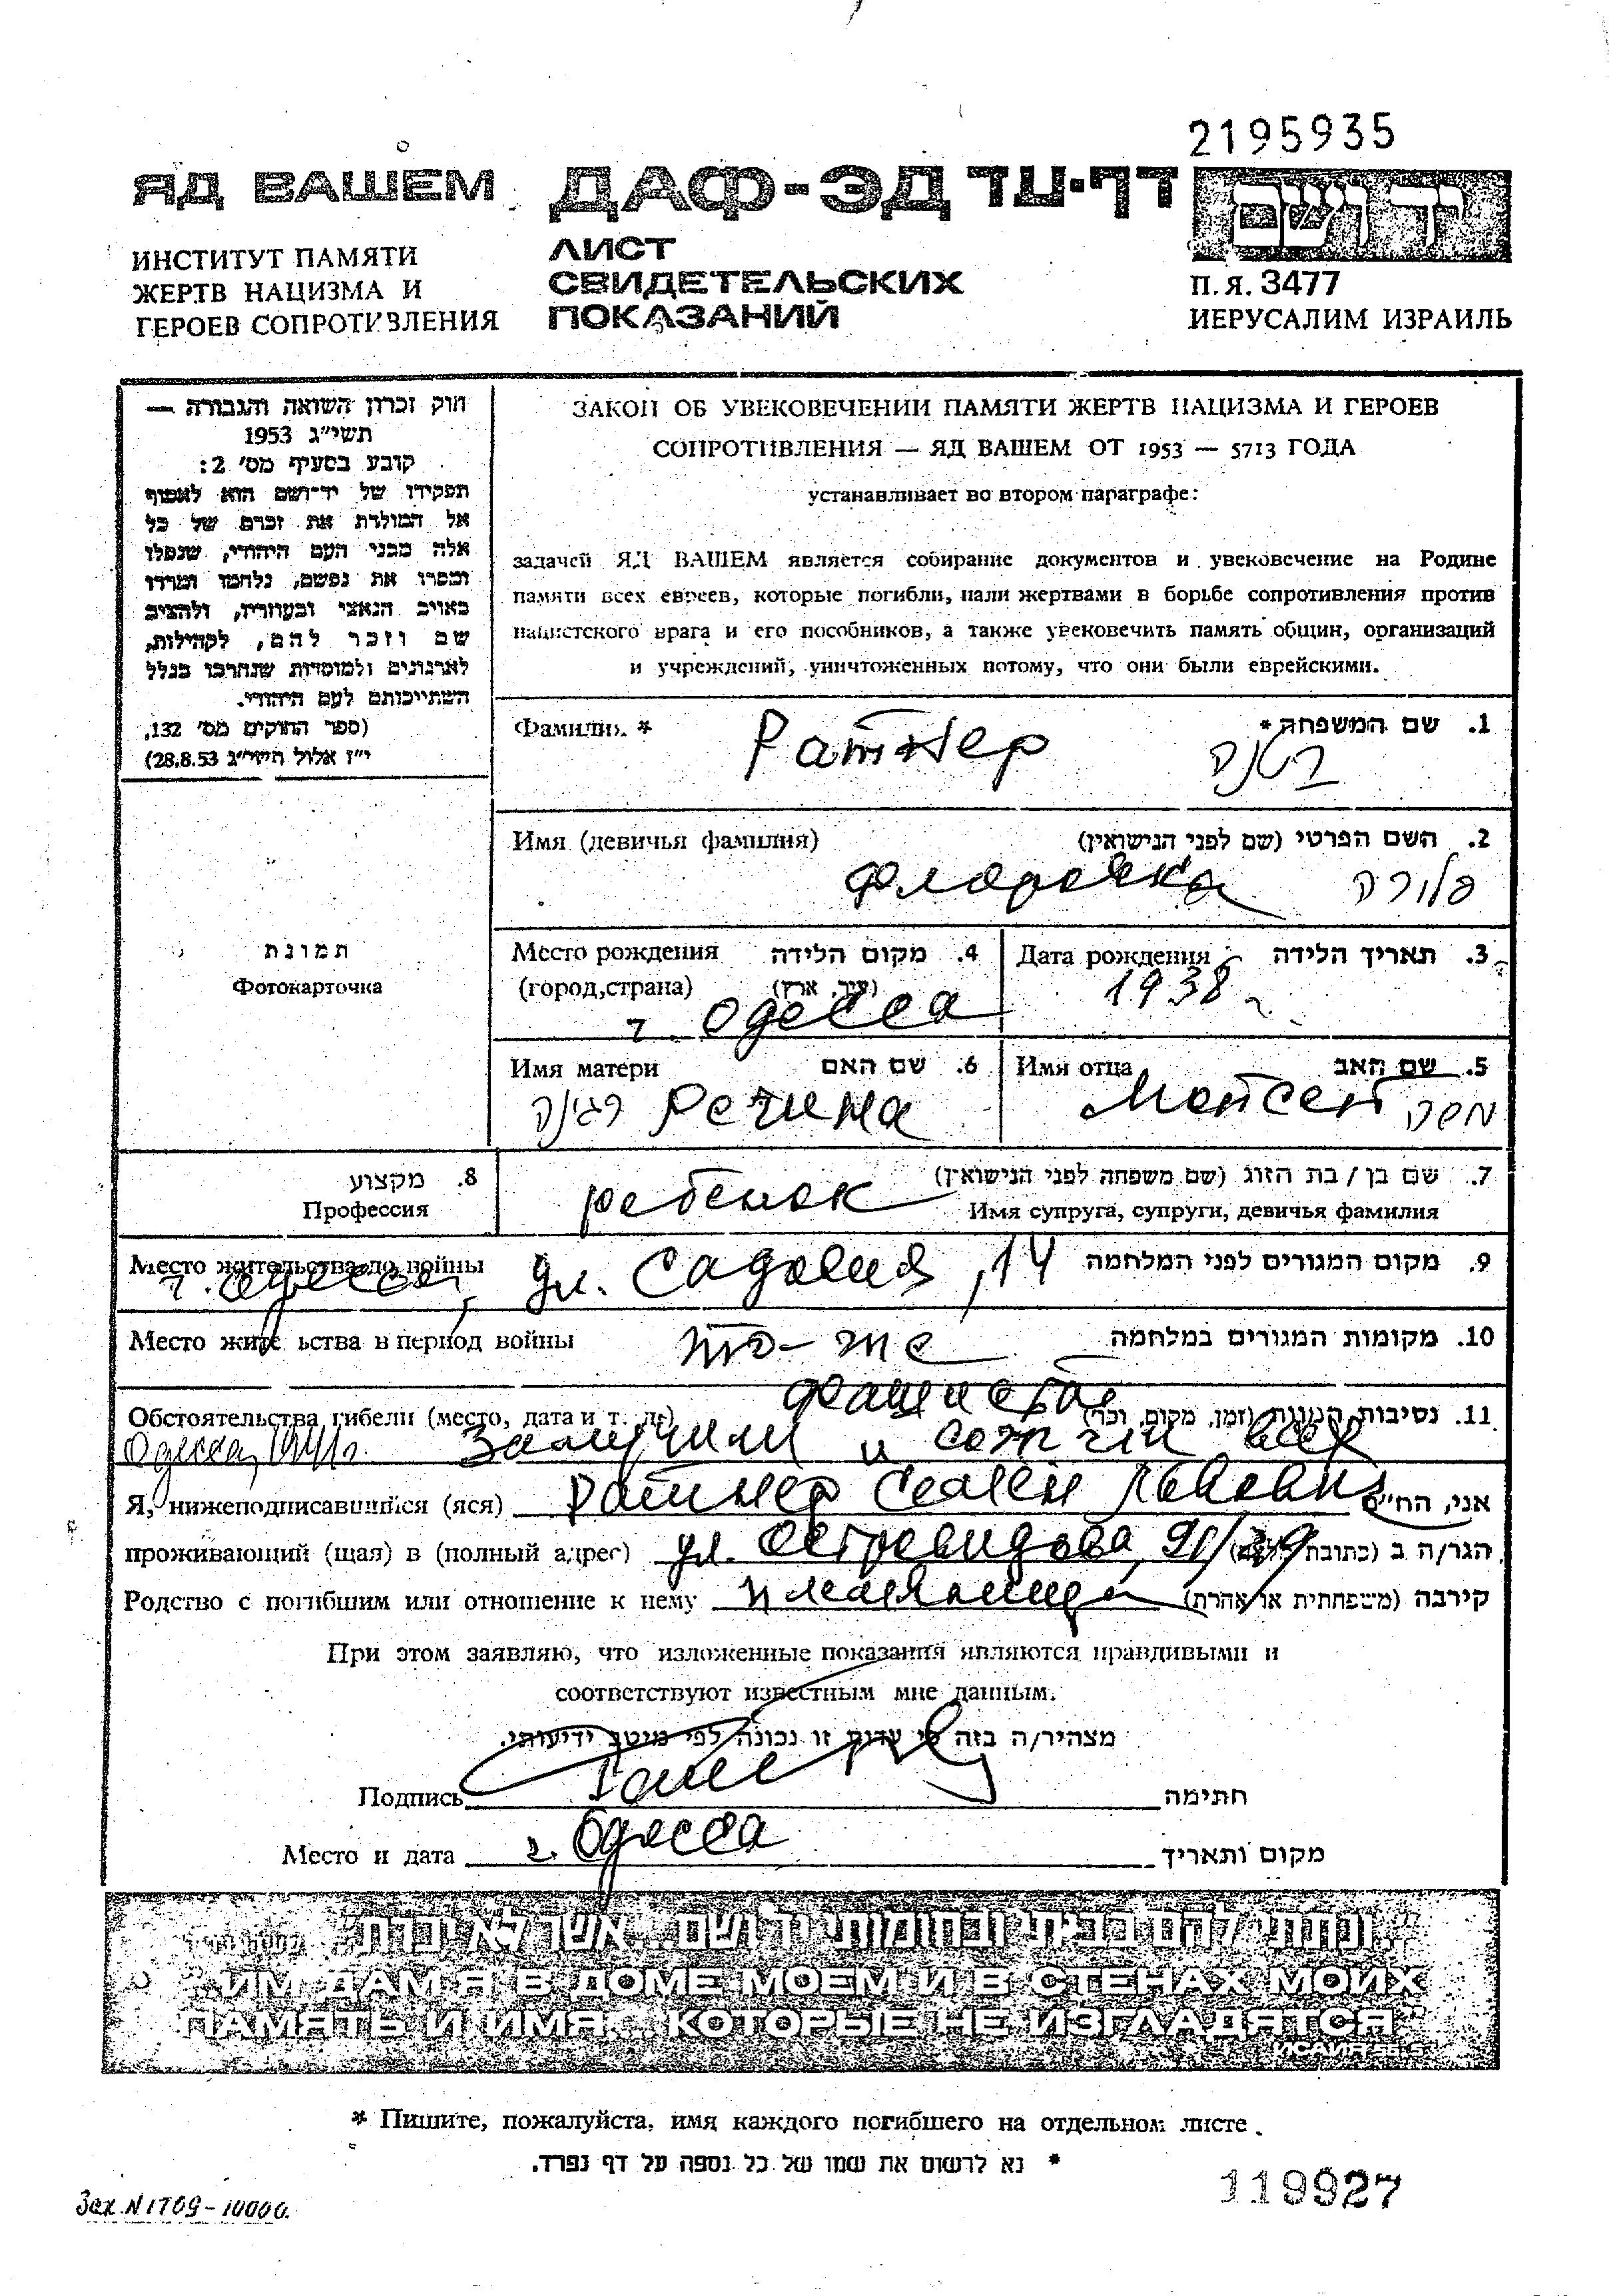 2195935
ЯД ВАШЕМ ДАФ-ЭД דף-עד יד ושם
ИНСТИТУТ ПАМЯТИ
ЖЕРТВ НАЦИЗМА И
ГЕРОЕВ СОПРОТИВЛЕНИЯ
ЛИСТ
СВИДЕТЕЛЬСКИХ
ПОКАЗАНИЙ
П.Я. 3477
ИЕРУСАЛИМ ИЗРАИЛЬ
חוק זכרון השואה והגבורה —
תשי"ג 1953
קובע בסעיף מס' 2:
תפקידו של יד-ושם הוא לאסוף
אל המולדת את זכרם של כל
אלה מבני העם היהודי, שנפלו
ומסרו את נפשם, נלחמו ומרדו
באויב הנאצי ובעוזריו, ולהציב
שם וזכר להם, לקהילות,
לארגונים ולמוסדות שנחרבו בגלל
השתייכותם לעם היהודי.
(ספר החוקים מס' 132,
י"ז אלול תשי"ג 28.8.53)
ЗАКОН ОБ УВЕКОВЕЧЕНИИ ПАМЯТИ ЖЕРТВ НАЦИЗМА И ГЕРОЕВ
СОПРОТИВЛЕНИЯ — ЯД ВАШЕМ ОТ 1953 — 5713 ГОДА
устанавливает во втором параграфе:
задачей ЯД ВАШЕМ является собирание документов и увековечение на Родине
памяти всех евреев, которые погибли, пали жертвами в борьбе сопротивления против
нацистского врага и его пособников, а также увековечить память общин, организаций
и учреждений, уничтоженных потому, что они были еврейскими.
Фамилия * Ратнер 1. שם המשפחה *
רטנר
Имя (девичья фамилия) 2. השם הפרטי (שם לפני הנישואין)
Флорочка פלורה
תמונת
Фотокарточка
Место рождения 4. מקום הלידה
(город,страна) (עיר, ארץ)
г. Одесса
Дата рождения 3. תאריך הלידה
1938
Имя матери 6. שם האם
רגינה Регина
Имя отца 5. שם האב
Моисей משה
8. מקצוע
Профессия
ребенок 7. שם בן / בת הזוג (שם משפחה לפני הנישואין)
Имя супруга, супруги, девичья фамилия
Место жительства до войны 9. מקום המגורים לפני המלחמה
г. Одесса, ул. Садовая, 14
Место жительства в период войны то-же 10. מקומות המגורים במלחמה
Обстоятельства гибели (место, дата и т. д.) фашисты 11. נסיבות המוות (זמן, מקום, וכו')
Одесса, 1941г. замучили и сожгли всех
Я, нижеподписавшийся (яся) Ратнер Семен Львович אני, הח"מ
проживающий (щая) в (полный адрес) ул. Островидова 91/39 הגר/ה ב (כתובת מלאה)
Родство с погибшим или отношение к нему племянница קירבה (משפחתית או אחרת)
При этом заявляю, что изложенные показания являются правдивыми и
соответствуют известным мне данным.
מצהיר/ה בזה כי עדות זו נכונה לפי מיטב ידיעותי.
Подпись חתימה
Место и дата г. Одесса מקום ותאריך
"ונתתי להם בביתי ובחומותי יד ושם... אשר לא יכרת"
"ИМ ДАМ Я В ДОМЕ МОЕМ И В СТЕНАХ МОИХ
ПАМЯТЬ И ИМЯ... КОТОРЫЕ НЕ ИЗГЛАДЯТСЯ"
ИСАИЯ 56, 5
* Пишите, пожалуйста, имя каждого погибшего на отдельном листе.
* נא לרשום את שמו של כל נספה על דף נפרד.
119927
Зак. N 1709-10000.